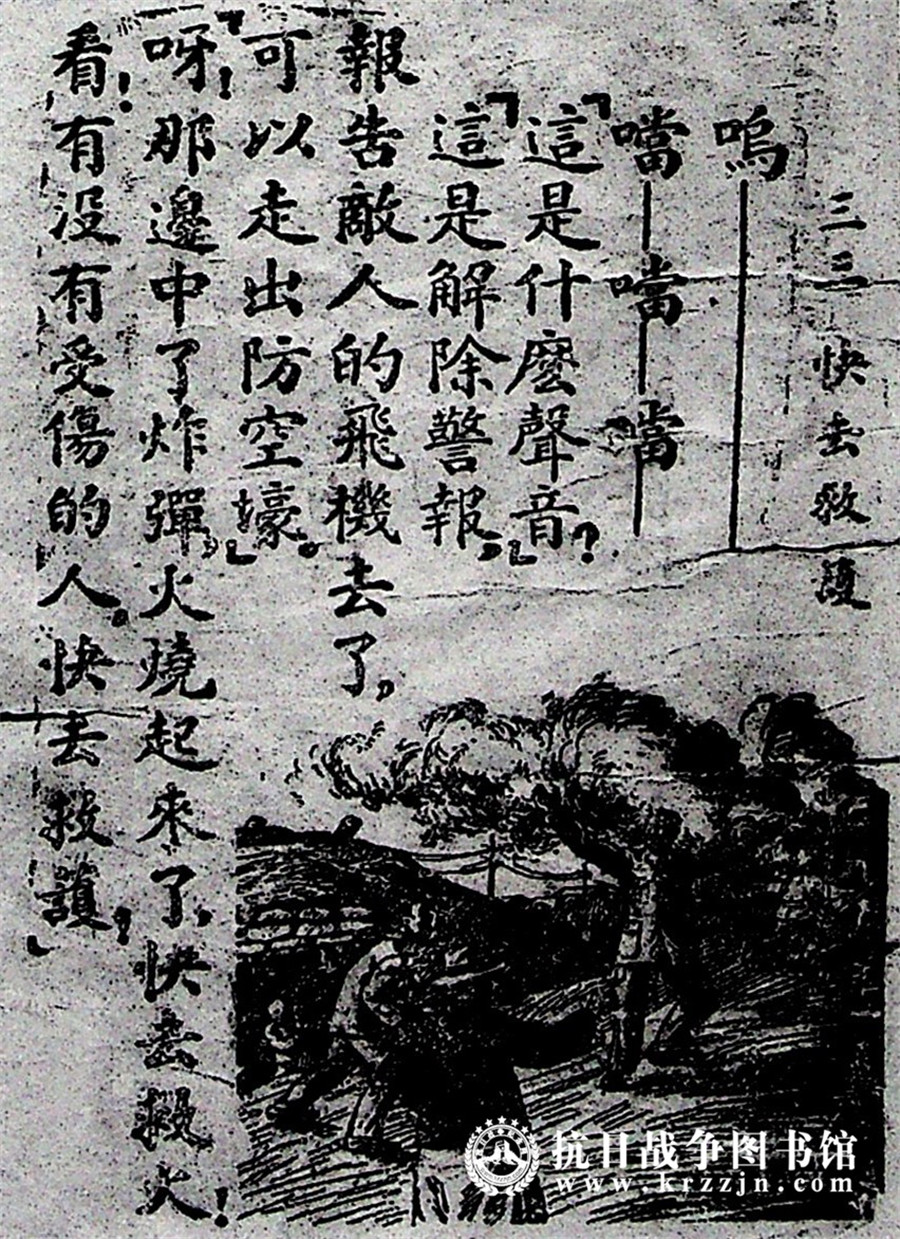 三三 快去救護
嗚——
噹—噹—噹—
「這是什麼聲音?」
「這是解除警報,
報告敵人的飛機去了,
可以走出防空壕。」
「呀!那邊中了炸彈,火燒起來了,快去救火!
看,有沒有受傷的人。快去救護,」
抗日战争图书馆
www.krzzjn.com